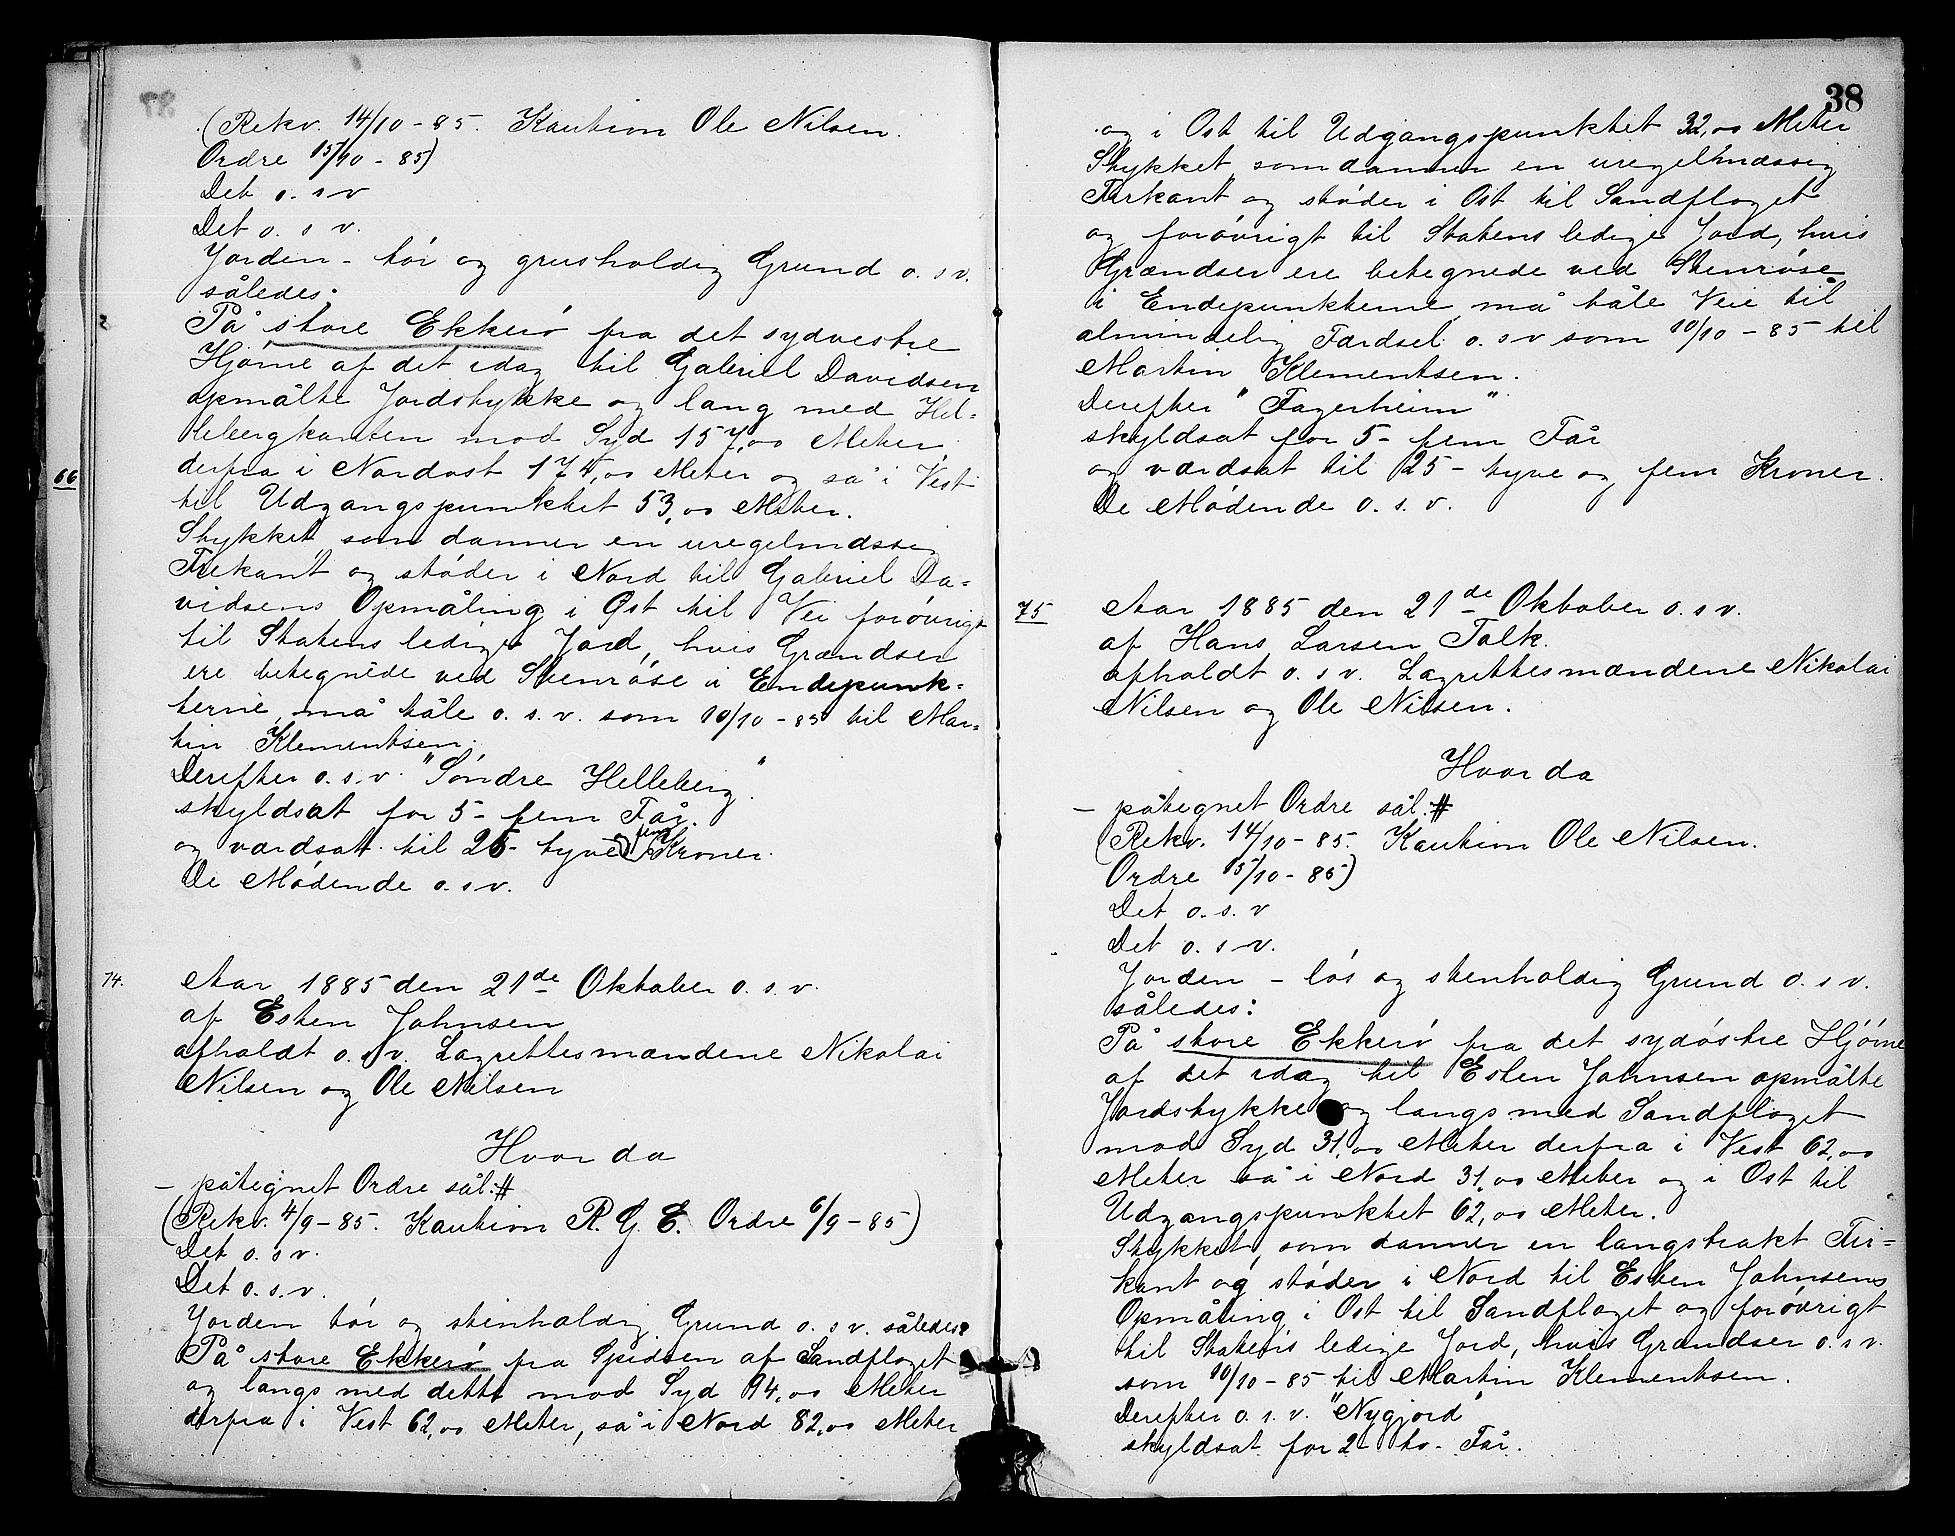 (Rekv. 14/10 - 85. Kaution Ole Nilsen.
Ordre 15/10 - 85)
Det o. s v
Det o. s v.
Jorden - tör og grusholdig Grund o. s v.
således:
På store Ekkerö fra det sydvestre
Hjörne af det idag til Gabriel Davidsen
opmålte Jordstykke og lang med Hel-
lebergkanten mod Syd 157,00 Meter,
derfra i Nordost 174,00 Meter og så i Vest
66
til Udgangspunktet 53,00 Meter.
Stykket som danner en uregelmdssig
Trekant og stöder i Nord til Gabriel Da-
vidsens Opmåling i Øst til Vei forövrigt
til Statens ledige Jord, hvis Grændser
ere betegnede ved Stenröse i Endepunk-
terne, må tåle o. s. v. som 10/10 - 85 til Mar-
tin Klementsen.
Derefter o. s. v. "Söndre Helleberg".
skyldsat for 5 - fem Får.
og værdsat til 25 - tyve og fem Kroner.
De Mödende o. s v.
74.
Aar 1885 den 21de Oktober o. s. v.
af Esten Johnsen
afholdt o. s v. Lagrettesmændene Nikolai
Nilsen og Ole Nilsen
Hvor da
- påtegnet Ordre sål. #
(Rekv. 4/9 - 85. Kaution R. G. E. Ordre 6/9 - 85)
Det o. s v.
Det o. s. v.
Jorden tör og stenholdig Grund o. s v. således:
På store Ekkerö fra Spidsen af Sandfloget
og langs med dette mod Syd 94,00 Meter
derfra i Vest 62,00 Meter, så i Nord 82,00 Meter
38
og i Ost til Udgangspunktet 32,00 Meter
Stykket som danner en uregelmæssig
Firkant og stöder i Ost til Sandfloget
og forövrigt til Statens ledige Jord, hvis
Grændser ere betegnede ved Stenröse
i Endepunkterne, må tåle Veie til
almindelig Færdsel o. s v som 10/10 - 85 til
Martin Klementsen.
Derefter "Fagerheim"
skyldsat for 5 - fem Får
og værdsat til 25 - tyve og fem Kroner.
De Mödende o. s. v.
75
Aar 1885 den 21de Oktober o. s v.
af Hans Larsen Talk.
afholdt o. s v. Lagrettesmændene Nikolai
Nilsen og Ole Nilsen.
Hvor da
- påtegnet Ordre sål. #
(Rekv. 14/10 - 85. Kaution Ole Nilsen.
Ordre 15/10 - 85)
Det o. s. v
Det o. s v.
Jorden - lös og stenholdig Grund o. s v.
således:
På store Ekkerö fra det sydöstre Hjörne
af det idag til Esten Johnsen opmålte
Jordstykke og langs med Sandfloget
mod Syd 31,00 Meter derfra i Vest 62,00
Meter så i Nord 31,00 Meter og i Ost til
Udgangspunktet 62,00 Meter.
Stykket, som danner en langstrakt Fir-
kant og stöder i Nord til Esten Johnsens
Opmåling i Ost til Sandfloget og forövrigt
til Statens ledige Jord, hvis Grændser o. s v.
som 10/10 - 85 til Martin Klementsen.
Derefter o. s. v. "Nygjord"
skyldsat for 2 - to - Får.